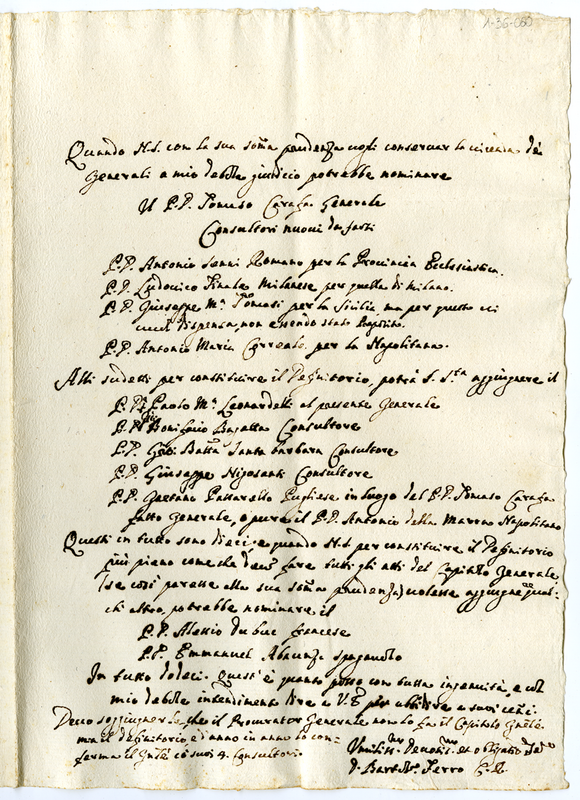 1-36-060
Quando N.S. con la sua soma prudenza vogli conservar la vicenda de'
Generali a mio debole giudicio potrebbe nominare
Il P.D. Tomaso Carafa Generale
Consultori nuovi da farsi
P.D. Antonio Sanni Romano per la Provincia Ecclesiastica.
P.D. Ludovico Finale Milanese per quella di Milano.
P.D. Giuseppe Mª Tomasi per la Sicilia ma per questo ci
dispensa, non essendo stato Preposito.
P.D. Antonio Maria Correale per la Napolitana.
Alli sudetti per constituire il Definitorio, potrà S. Sta aggiugnere il
P.D. Paolo Mª Leonardelli al presente Generale
Bonifacio Bagatta Consultore
P.D. Gio: Batta Santa barbara Consultore
P.D. Giuseppe Nigosanti Consultore
P.D. Gaetano Passarello Pugliese in luogo del P.D. Tomaso Carafa
fatto Generale, o pure il P.D. Antonio della Marono Napolitano
Questi in tutto son dieci, e quando N.S. per constituire il Definitorio
più pieno come che deve fare tutti gli atti del Capitolo Generale,
(se così paresse alla sua soma prudenza) volesse aggiugnere qual-
ch'altro, potrebbe nominare il
P.D. Alessio du buc francese
P.D. Emmanuel Abaunza spagnuolo
In tutto dodeci. Quest' è quanto posso con tutta ingenuità, e col
mio debole intendimento dire a V.E. per ubbidire a suoi cenni.
Devo soggiugnerle che il Procurator Generale non lo fa il Capitolo Gnãle
ma il definitorio e d'anno in anno lo con-
ferma il Gnãle co' suoi 4. Consultori.
Umiliss.mo Devotis.mo et obligatis.
D. Bart. Ferro C.R.